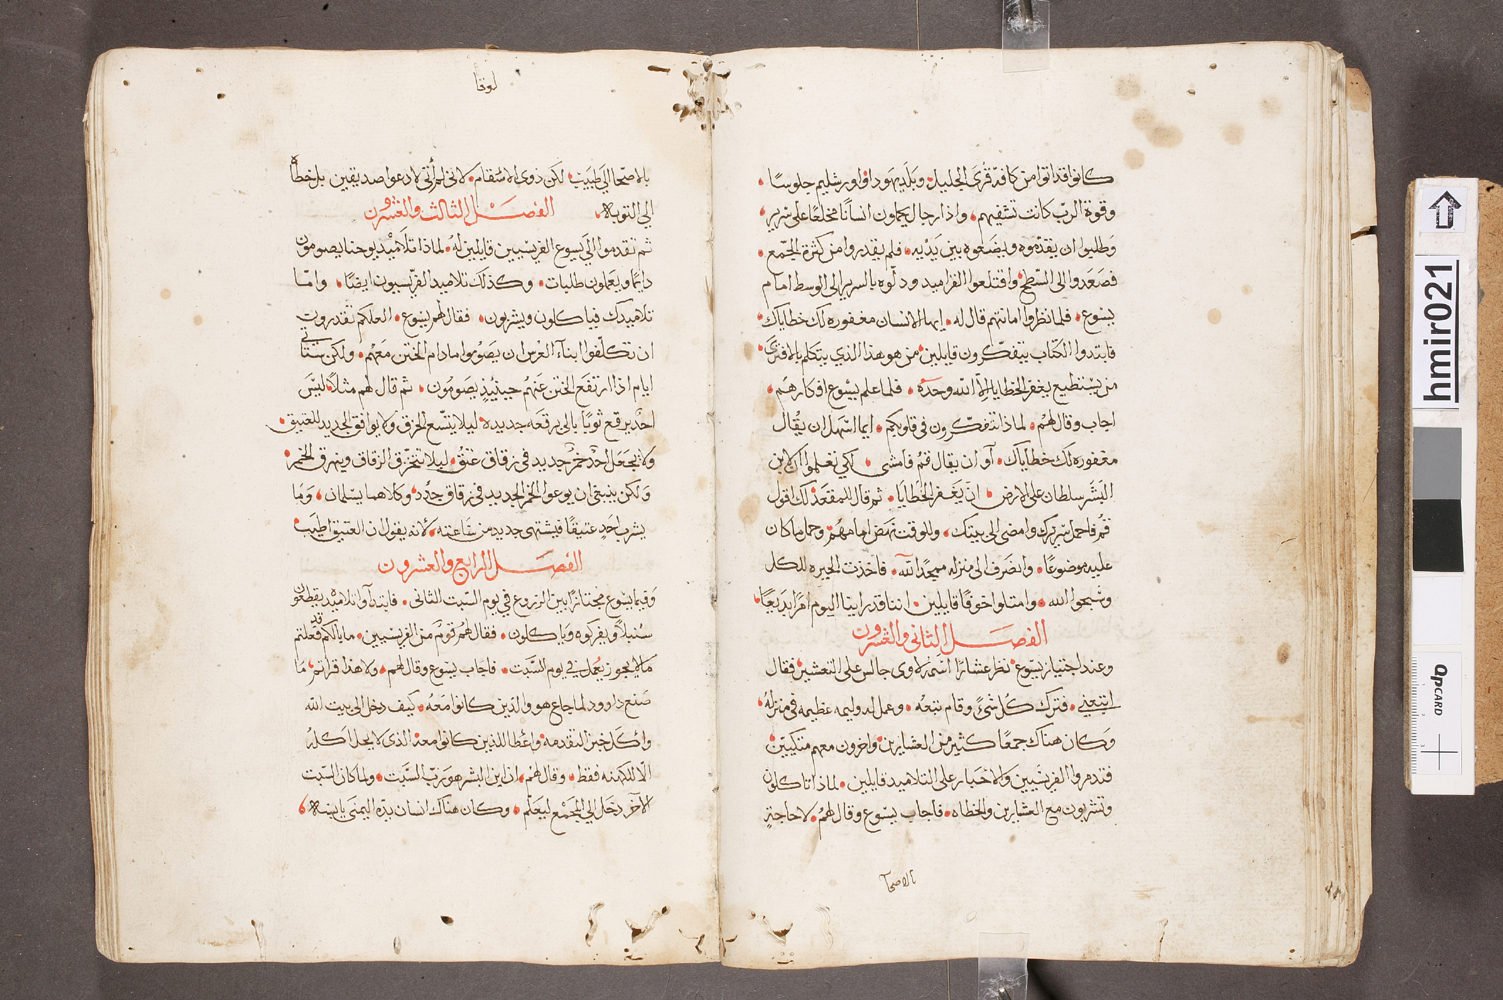 كانوا قد اتوا من كافة قرى الجليل وبلد يهودا واورشليم جلوسًا
وقوة الرب كانت تشفيهم واذا رجال يحملون انسانًا مخلعًا على سرير
وطلبوا ان يقدموه ويضعوه بين يديه فلم يقدروا من كثرة الجمع
فصعدوا الى السطح واقتلعوا القراميد ودلوه بالسرير الى الوسط امام
يسوع فلما نظر امانتهم قال له ايها الانسان مغفورة لك خطاياك
فابتدوا الكتاب يتفكرون قايلين من هو هذا الذي يتكلم بالافترى
من يستطيع يغفر الخطايا الا الله وحده فلما علم يسوع افكارهم
اجاب وقال لهم لماذا تتفكرون في قلوبكم ايما اسهل ان يقال
مغفورة لك خطاياك او ان يقال قم فامشي لكي تعلموا ان لابن
البشر سلطان على الارض ان يغفر الخطايا ثم قال للمقعد لك اقول
قم فاحمل سريرك وامضي الى بيتك وللوقت نهض امامهم وحمل ما كان
عليه موضوعًا وانصرف الى منزله ممجدًا الله فاخذت الحيره للكل
وسبحوا الله وامتلوا خوفًا قايلين اننا قد راينا اليوم امرًا بديعًا
الفصل الثاني والعشرون
وعند اجتياز يسوع نظر عشارًا اسمه لاوي جالس على التعشير فقال
اتبعني فترك كل شيء وقام تبعه وعمل له وليمه عظيمه في منزله
وكان هناك جمعًا كثير من العشارين واخرون معهم متكيين
فتدمروا الفريسيين والاحبار على التلاميد قايلين لماذا تاكلون
وتشربون مع العشارين والخطاه فاجاب يسوع وقال لهم لا حاجة
بالاصحا
لوقا
بالاصحا الى طبيب لكن ذوي الاسقام لاني لم أتي لادعوا صديقين بل خطاه
الى التوبة
الفصل الثالث والعشرون
ثم تقدموا الى يسوع الفريسيين قايلين له لماذا تلاميد يوحنا يصومون
دايمًا ويعملون طلبات وكذلك تلاميد الفريسيون ايضًا واما
تلاميدك فياكلون ويشربون فقال لهم يسوع العلكم تقدروت
ان تكلفوا ابناء العرس ان يصوموا مادام الختن معهم ولكن ستاتي
ايام اذا ارتفع الختن عنهم حينيذ يصومون ثم قال لهم مثلًا ليس
احد يرقع ثوبًا بالي برقعه جديده ليلا يتسع الخرق ولا يوافق الجديد للعتيق
ولا يجعل احد خمر جديد في زقاق عتق ليلا تنخرق الزقاق وينهرق الخمر
ولكن ينبغي ان يوعوا الخمر الجديد في زقاق جدد وكلاهما يسلمان وما
يشرب احد عتيقًا فيشتهي جديد من ساعته لانه يقول ان العتيق اطيب
الفصل الرابع والعشرون
وفيما يسوع مجتازًا بين الزروع في يوم السبت الثاني فابتدأوا تلاميد يقطعون
سنبلًا ويفركوه وياكلون فقال لهم قوم من الفريسيين ما بالكم قد فعلتم
ما لا يجوز يعمل في يوم السبت فاجاب يسوع وقال لهم ولا هذا قراتم ما
صنع داوود لما جاع هو والذين كانوا معه كيف دخل الى بيت الله
واكل خبز التقدمه واعطا للذين كانوا معه الذي لا يحل اكله
الا للكهنه فقط وقال لهم ان ابن البشر هو رب السبت ولما كان السبت
الآخر دخل الى المجمع ليعلم وكان هناك انسان يده اليمنى يابسة
hmir021
QPCARD